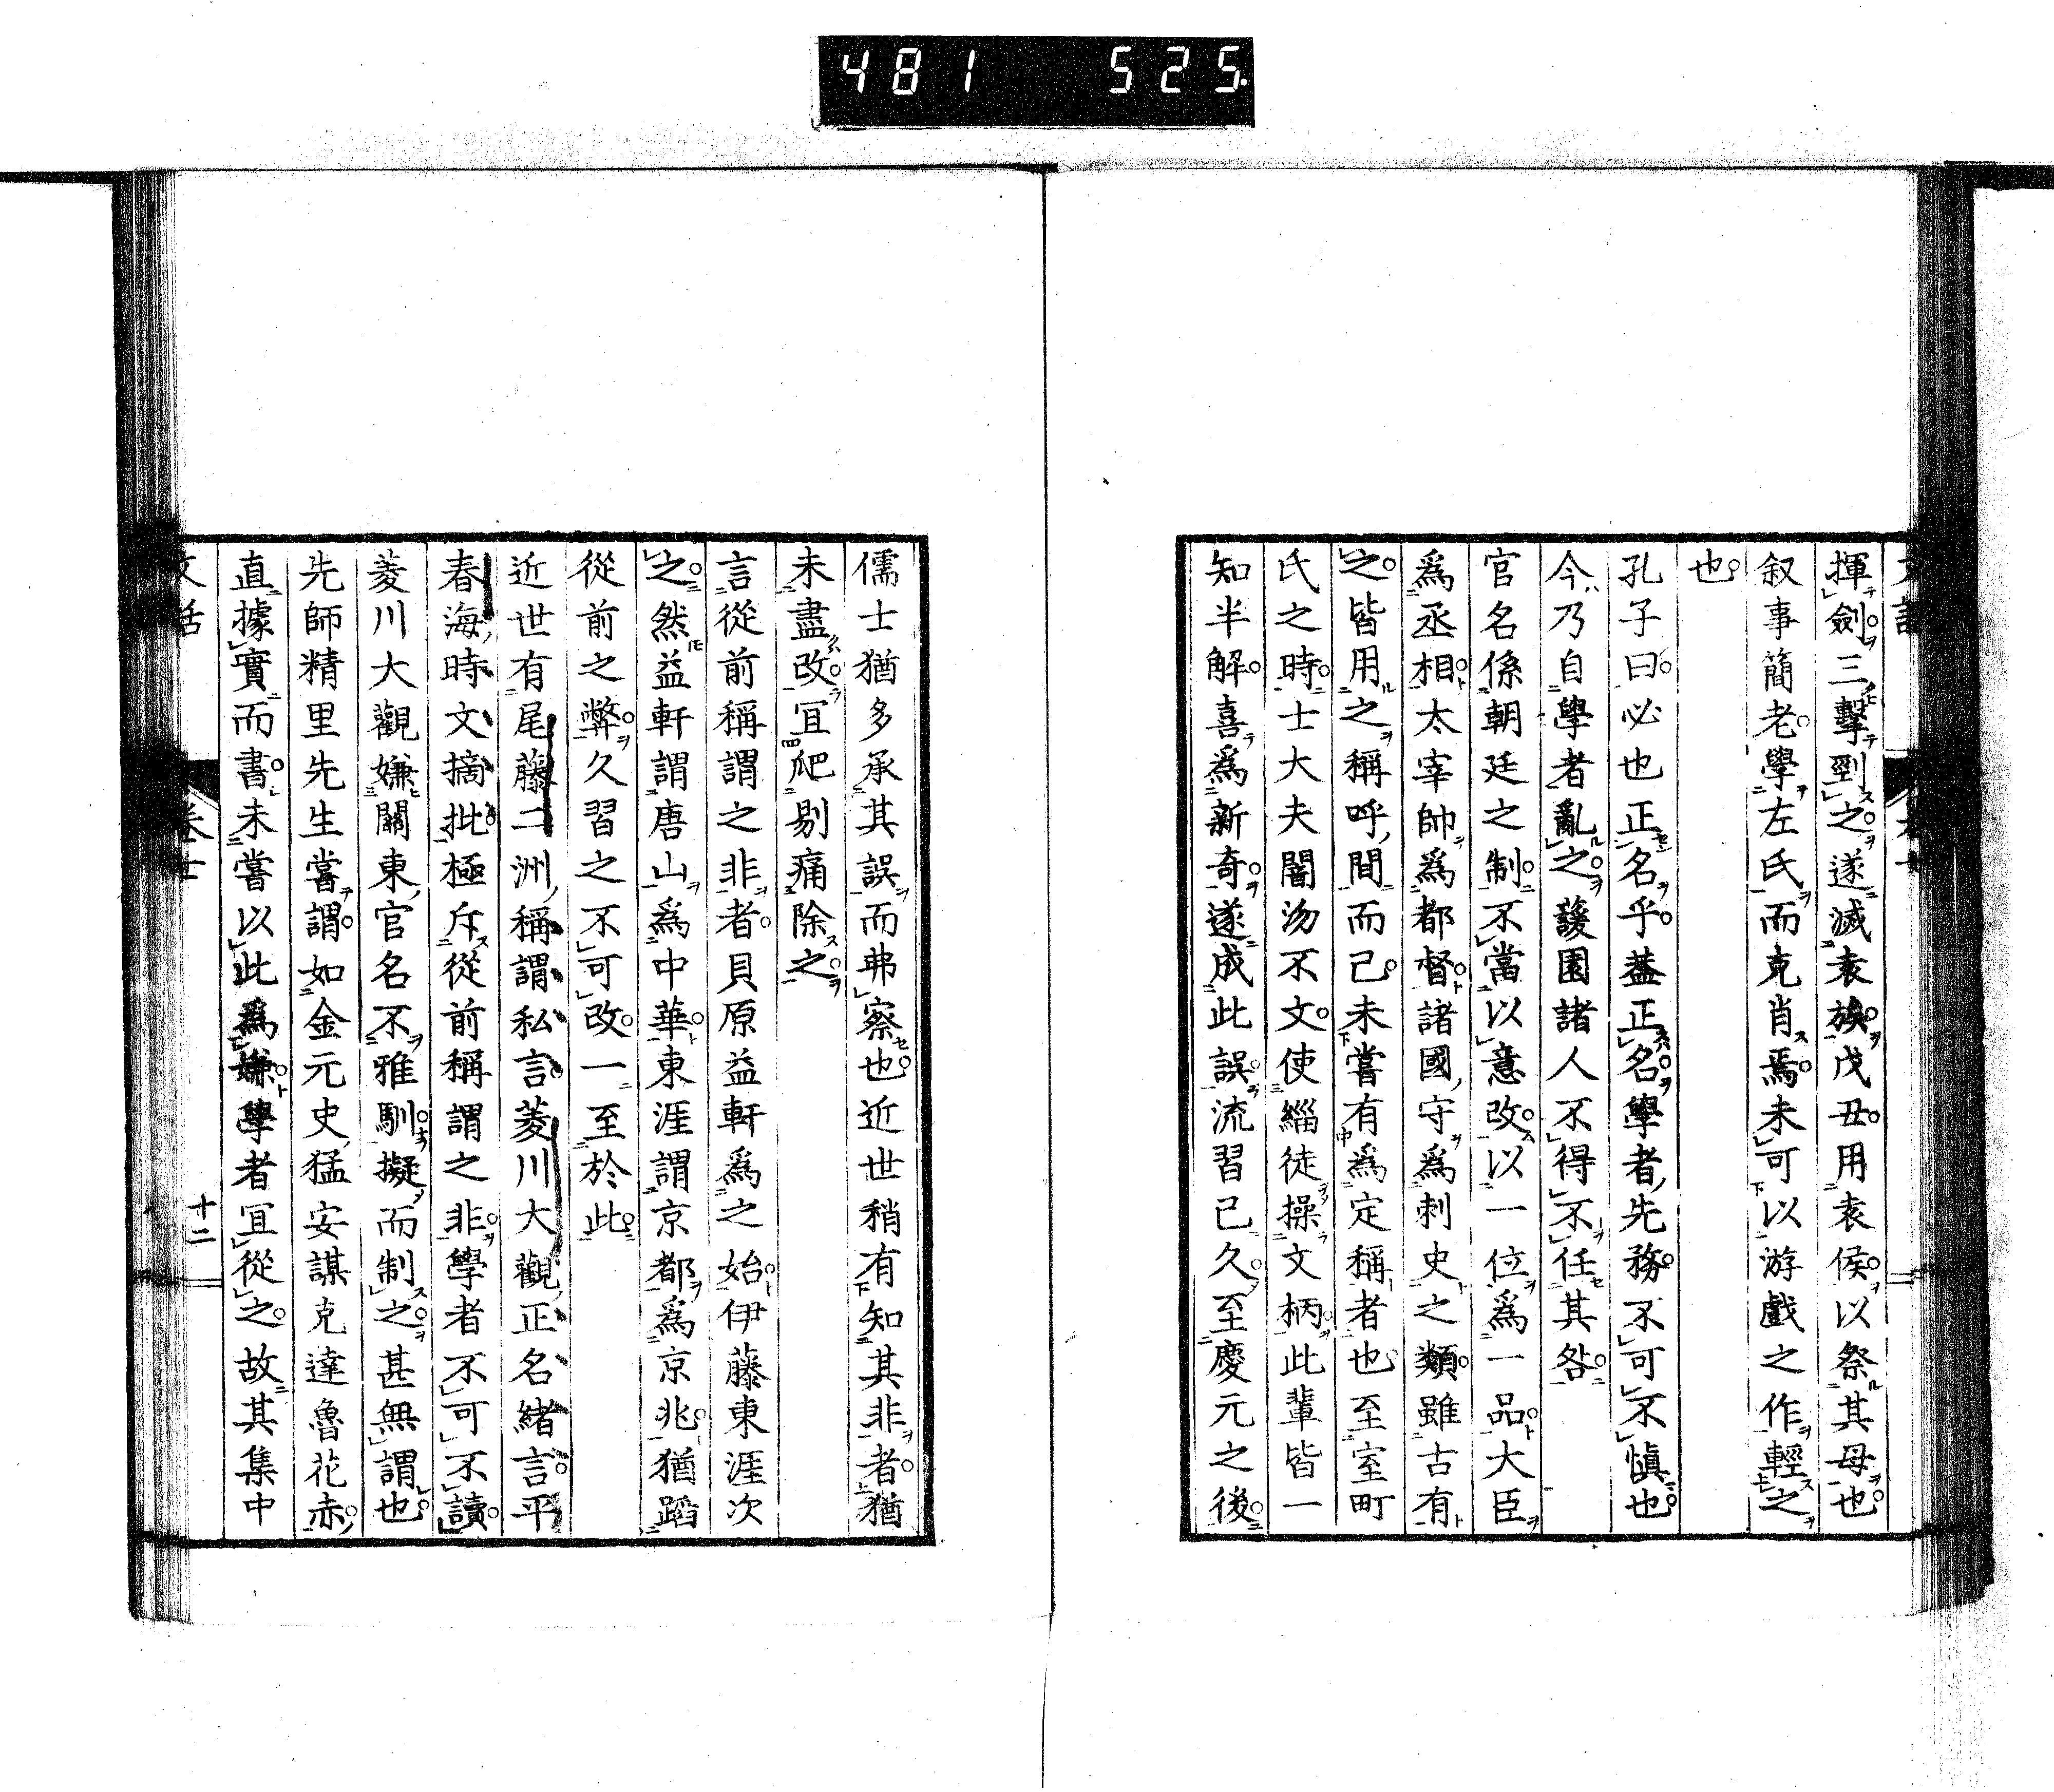 481 525
揮劍三擊剄之遂滅袁族戊丑用袁侯以祭其母也
叙事簡老學左氏而克肖焉未可以游戲之作輕之
也
孔子曰必也正名乎葢正名學者先務不可不愼也
今乃自學者亂之護園諸人不得不任其咎
官名係朝廷之制不當以意改以一位爲一品大臣
爲丞相太宰帥爲都督諸國守爲刺史之類雖古有
之皆用之稱呼間而已未嘗有爲定稱者也至室町
氏之時士大夫闇沕不文使緇徒操文柄此輩皆一
知半解喜爲新奇遂成此誤流習已久至慶元之後
儒士猶多承其誤而弗察也近世稍有知其非者猶
未盡改宜爬剔痛除之
言從前稱謂之非者貝原益軒爲之始伊藤東涯次
之然益軒謂唐山爲中華東涯謂京都爲京兆猶蹈
從前之弊久習之不可改一至於此
近世有尾藤二洲稱謂私言菱川大觀正名緖言平
春海時文摘批極斥從前稱謂之非學者不可不讀
菱川大觀嫌關東官名不雅馴擬而制之甚無謂也
先師精里先生嘗謂如金元史猛安謀克達魯花赤
直據實而書未嘗以此爲嫌學者宜從之故其集中
文話 卷七 十二